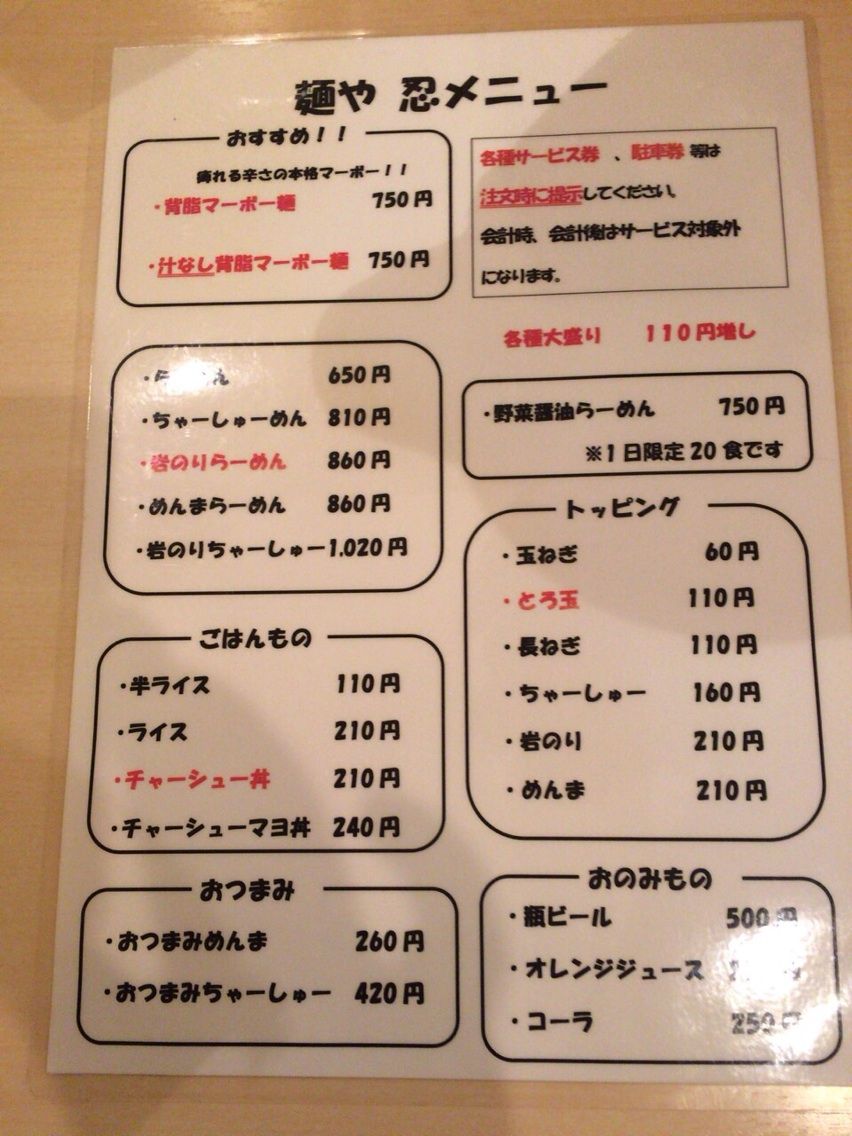 麺や 忍メニュー
おすすめ！！
痺れる辛さの本格マーボー！！
・背脂マーボー麺 750円
・汁なし背脂マーボー麺 750円
各種サービス券 、駐車券 等は
注文時に提示してください。
会計時、会計後はサービス対象外
になります。
各種大盛り 110円増し
650円
・ちゃーしゅーめん 810円
・岩のりらーめん 860円
・めんまらーめん 860円
・岩のりちゃーしゅー 1.020円
・野菜醤油らーめん 750円
※1日限定20食です
トッピング
・玉ねぎ 60円
・とろ玉 110円
・長ねぎ 110円
・ちゃーしゅー 160円
・岩のり 210円
・めんま 210円
ごはんもの
・半ライス 110円
・ライス 210円
・チャーシュー丼 210円
・チャーシューマヨ丼 240円
おつまみ
・おつまみめんま 260円
・おつまみちゃーしゅー 420円
おのみもの
・瓶ビール 500円
・オレンジジュース
・コーラ 250円